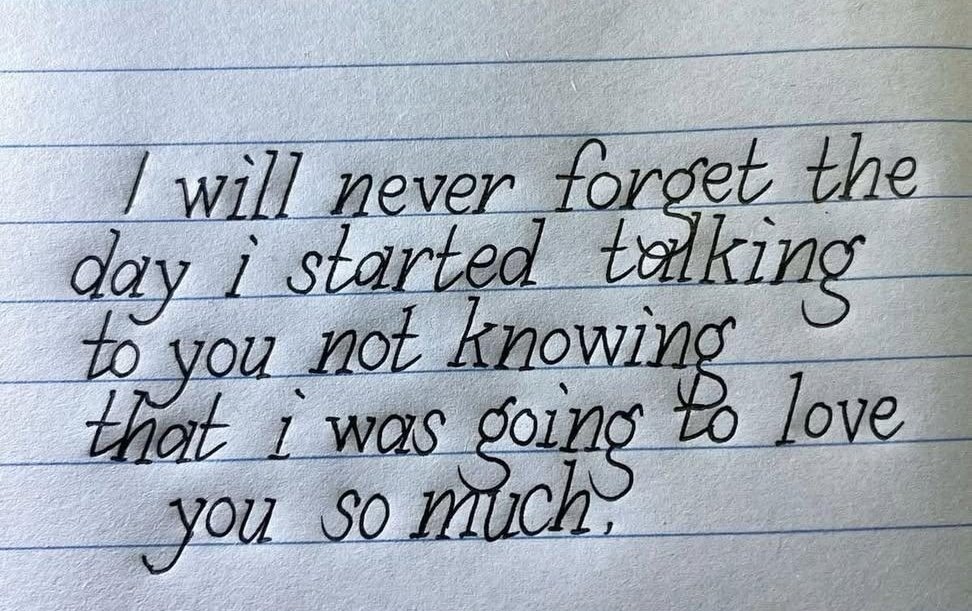 I will never forget the
day i started talking
to you not knowing
that i was going to love
you so much.